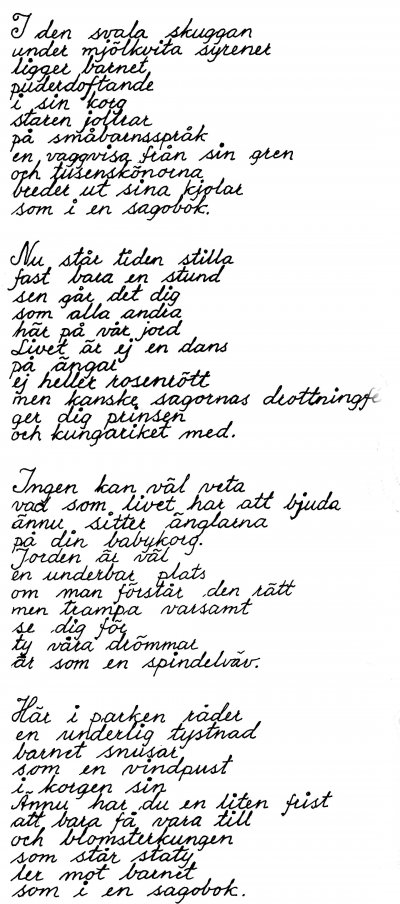 I den svala skuggan
under mjölkvita syrener
ligger barnet
puderdoftande
i sin korg
staren joltrar
på småbarnsspråk
en vaggvisa från sin gren
och tusenskönorna
breder ut sina kjolar
som i en sagobok.
Nu står tiden stilla
fast bara en stund
sen går det dig
som alla andra
här på vår jord
Livet är ej en dans
på ängar
ej heller rosenrött
men kanske sagornas drottningfe
ger dig prinsen
och kungariket med.
Ingen kan väl veta
vad som livet har att bjuda
ännu sitter änglarna
på din babykorg.
Jorden är väl
en underbar plats
om man förstår den rätt
men trampa varsamt
se dig för
ty våra drömmar
är som en spindelväv.
Här i parken råder
en underlig tystnad
barnet snusar
som en vindpust
i korgen sin
Ännu har du en liten frist
att bara få vara till
och blomsterkungen
som står staty
ler mot barnet
som i en sagobok.